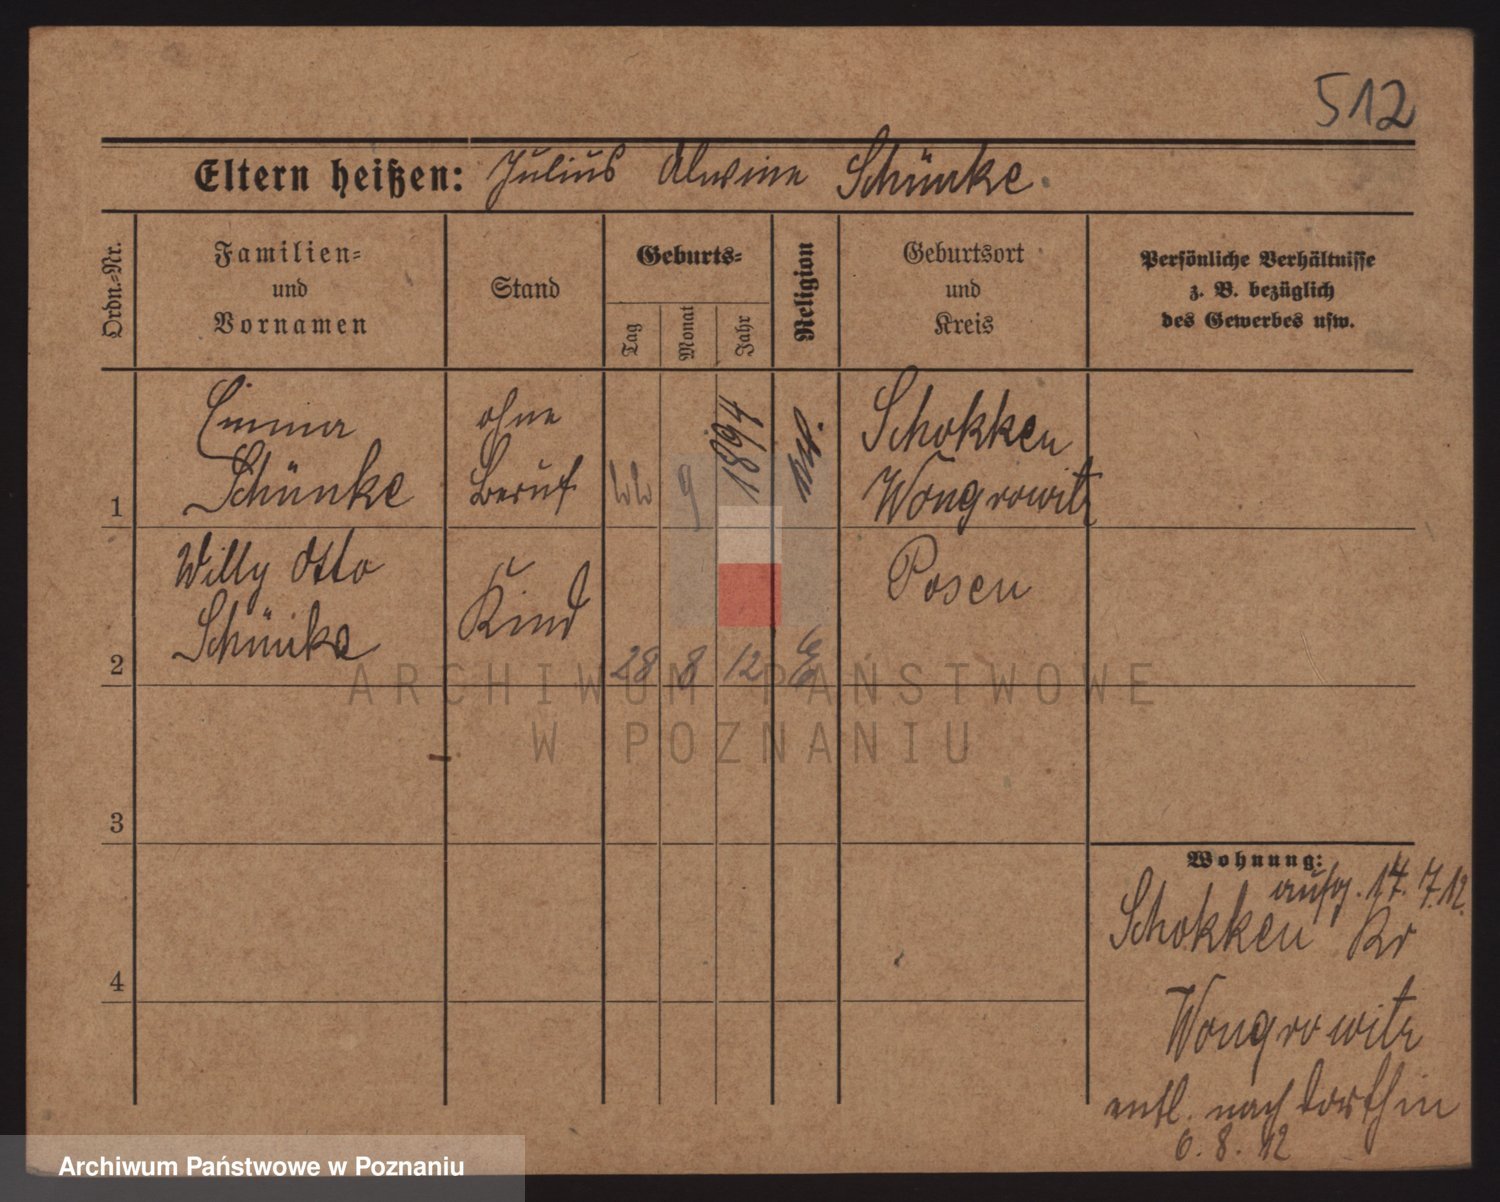 512
Eltern heißen: Julius Alwine Schünke.
Ordn.-Nr.
Familien-
und
Vornamen
Stand
Geburts-
Tag
Monat
Jahr
Religion
Geburtsort
und
Kreis
Persönliche Verhältnisse
z. B. bezüglich
des Gewerbes usw.
1
Emma
Schünke
ohne
Beruf
9
1894
Schokken
Wongrowitz
2
Willy Otto
Schünke
Kind
28
8
12
Posen
3
4
Wohnung:
ausg. 17. 7. 12.
Schokken Kr
Wongrowitz
entl. nach dorthin
6. 8. 12
ARCHIWUM PAŃSTWOWE
W POZNANIU
Archiwum Państwowe w Poznaniu